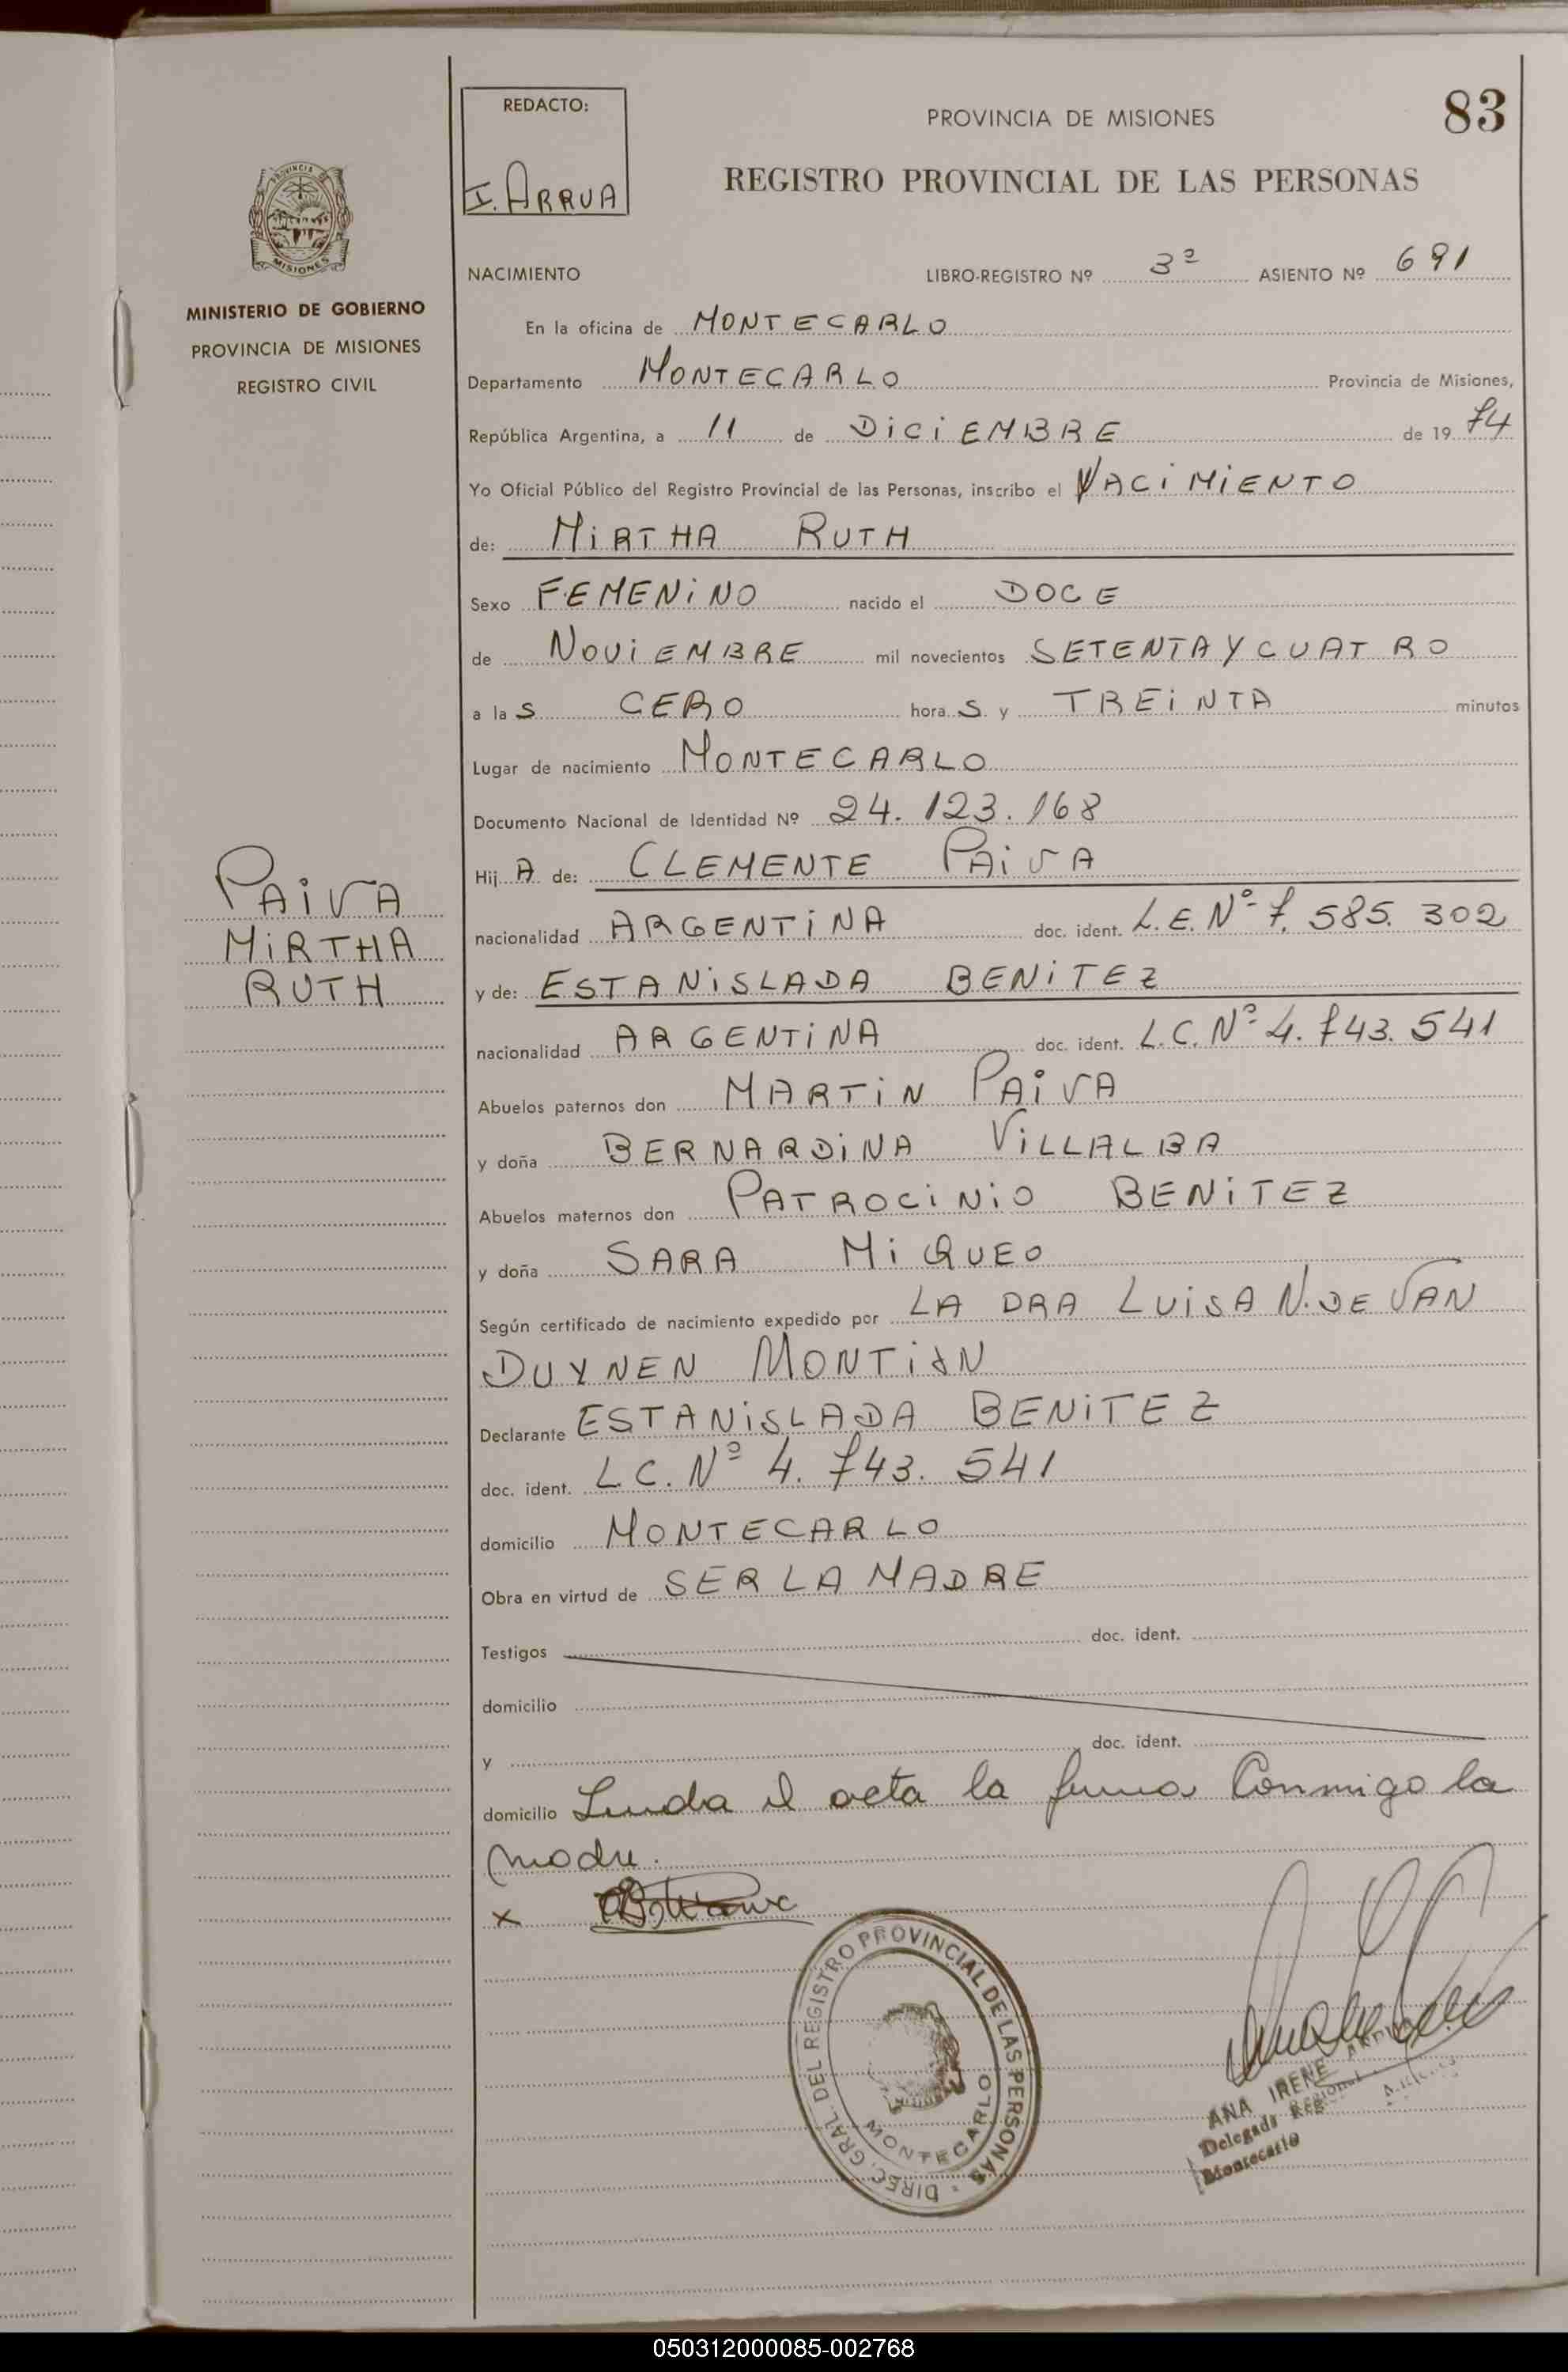 REDACTO:
I. ARRUA
PROVINCIA DE MISIONES
83
REGISTRO PROVINCIAL DE LAS PERSONAS
PROVINCIA DE
MISIONES
MINISTERIO DE GOBIERNO
PROVINCIA DE MISIONES
REGISTRO CIVIL
NACIMIENTO LIBRO-REGISTRO Nº 3º ASIENTO Nº 691
En la oficina de MONTECARLO
Departamento MONTECARLO Provincia de Misiones,
República Argentina, a 11 de DICIEMBRE de 19 74
Yo Oficial Público del Registro Provincial de las Personas, inscribo el NACIMIENTO
de: MIRTHA RUTH
Sexo FEMENINO nacido el DOCE
de NOVIEMBRE mil novecientos SETENTA Y CUATRO
a la S CERO hora S y TREINTA minutos
Lugar de nacimiento MONTECARLO
Documento Nacional de Identidad Nº 24.123.168
Hij A de: CLEMENTE PAIVA
nacionalidad ARGENTINA doc. ident. L.E.Nº 7.585.302
y de: ESTANISLADA BENITEZ
nacionalidad ARGENTINA doc. ident. L.C.Nº 4.743.541
Abuelos paternos don MARTIN PAIVA
y doña BERNARDINA VILLALBA
Abuelos maternos don PATROCINIO BENITEZ
y doña SARA MIQUEO
Según certificado de nacimiento expedido por LA DRA LUISA N. DE VAN
DUYNEN MONTIAN
Declarante ESTANISLADA BENITEZ
doc. ident. L.C.Nº 4.743.541
domicilio MONTECARLO
Obra en virtud de SER LA MADRE
Testigos doc. ident.
domicilio
y doc. ident.
domicilio Leida el acta la firma Conmigo la
madre.
x
PAIVA
MIRTHA
RUTH
DIREC. GRAL. DEL REGISTRO PROVINCIAL DE LAS PERSONAS
MONTECARLO
ANA IRENE
Delegada Regional
Montecarlo
050312000085-002768